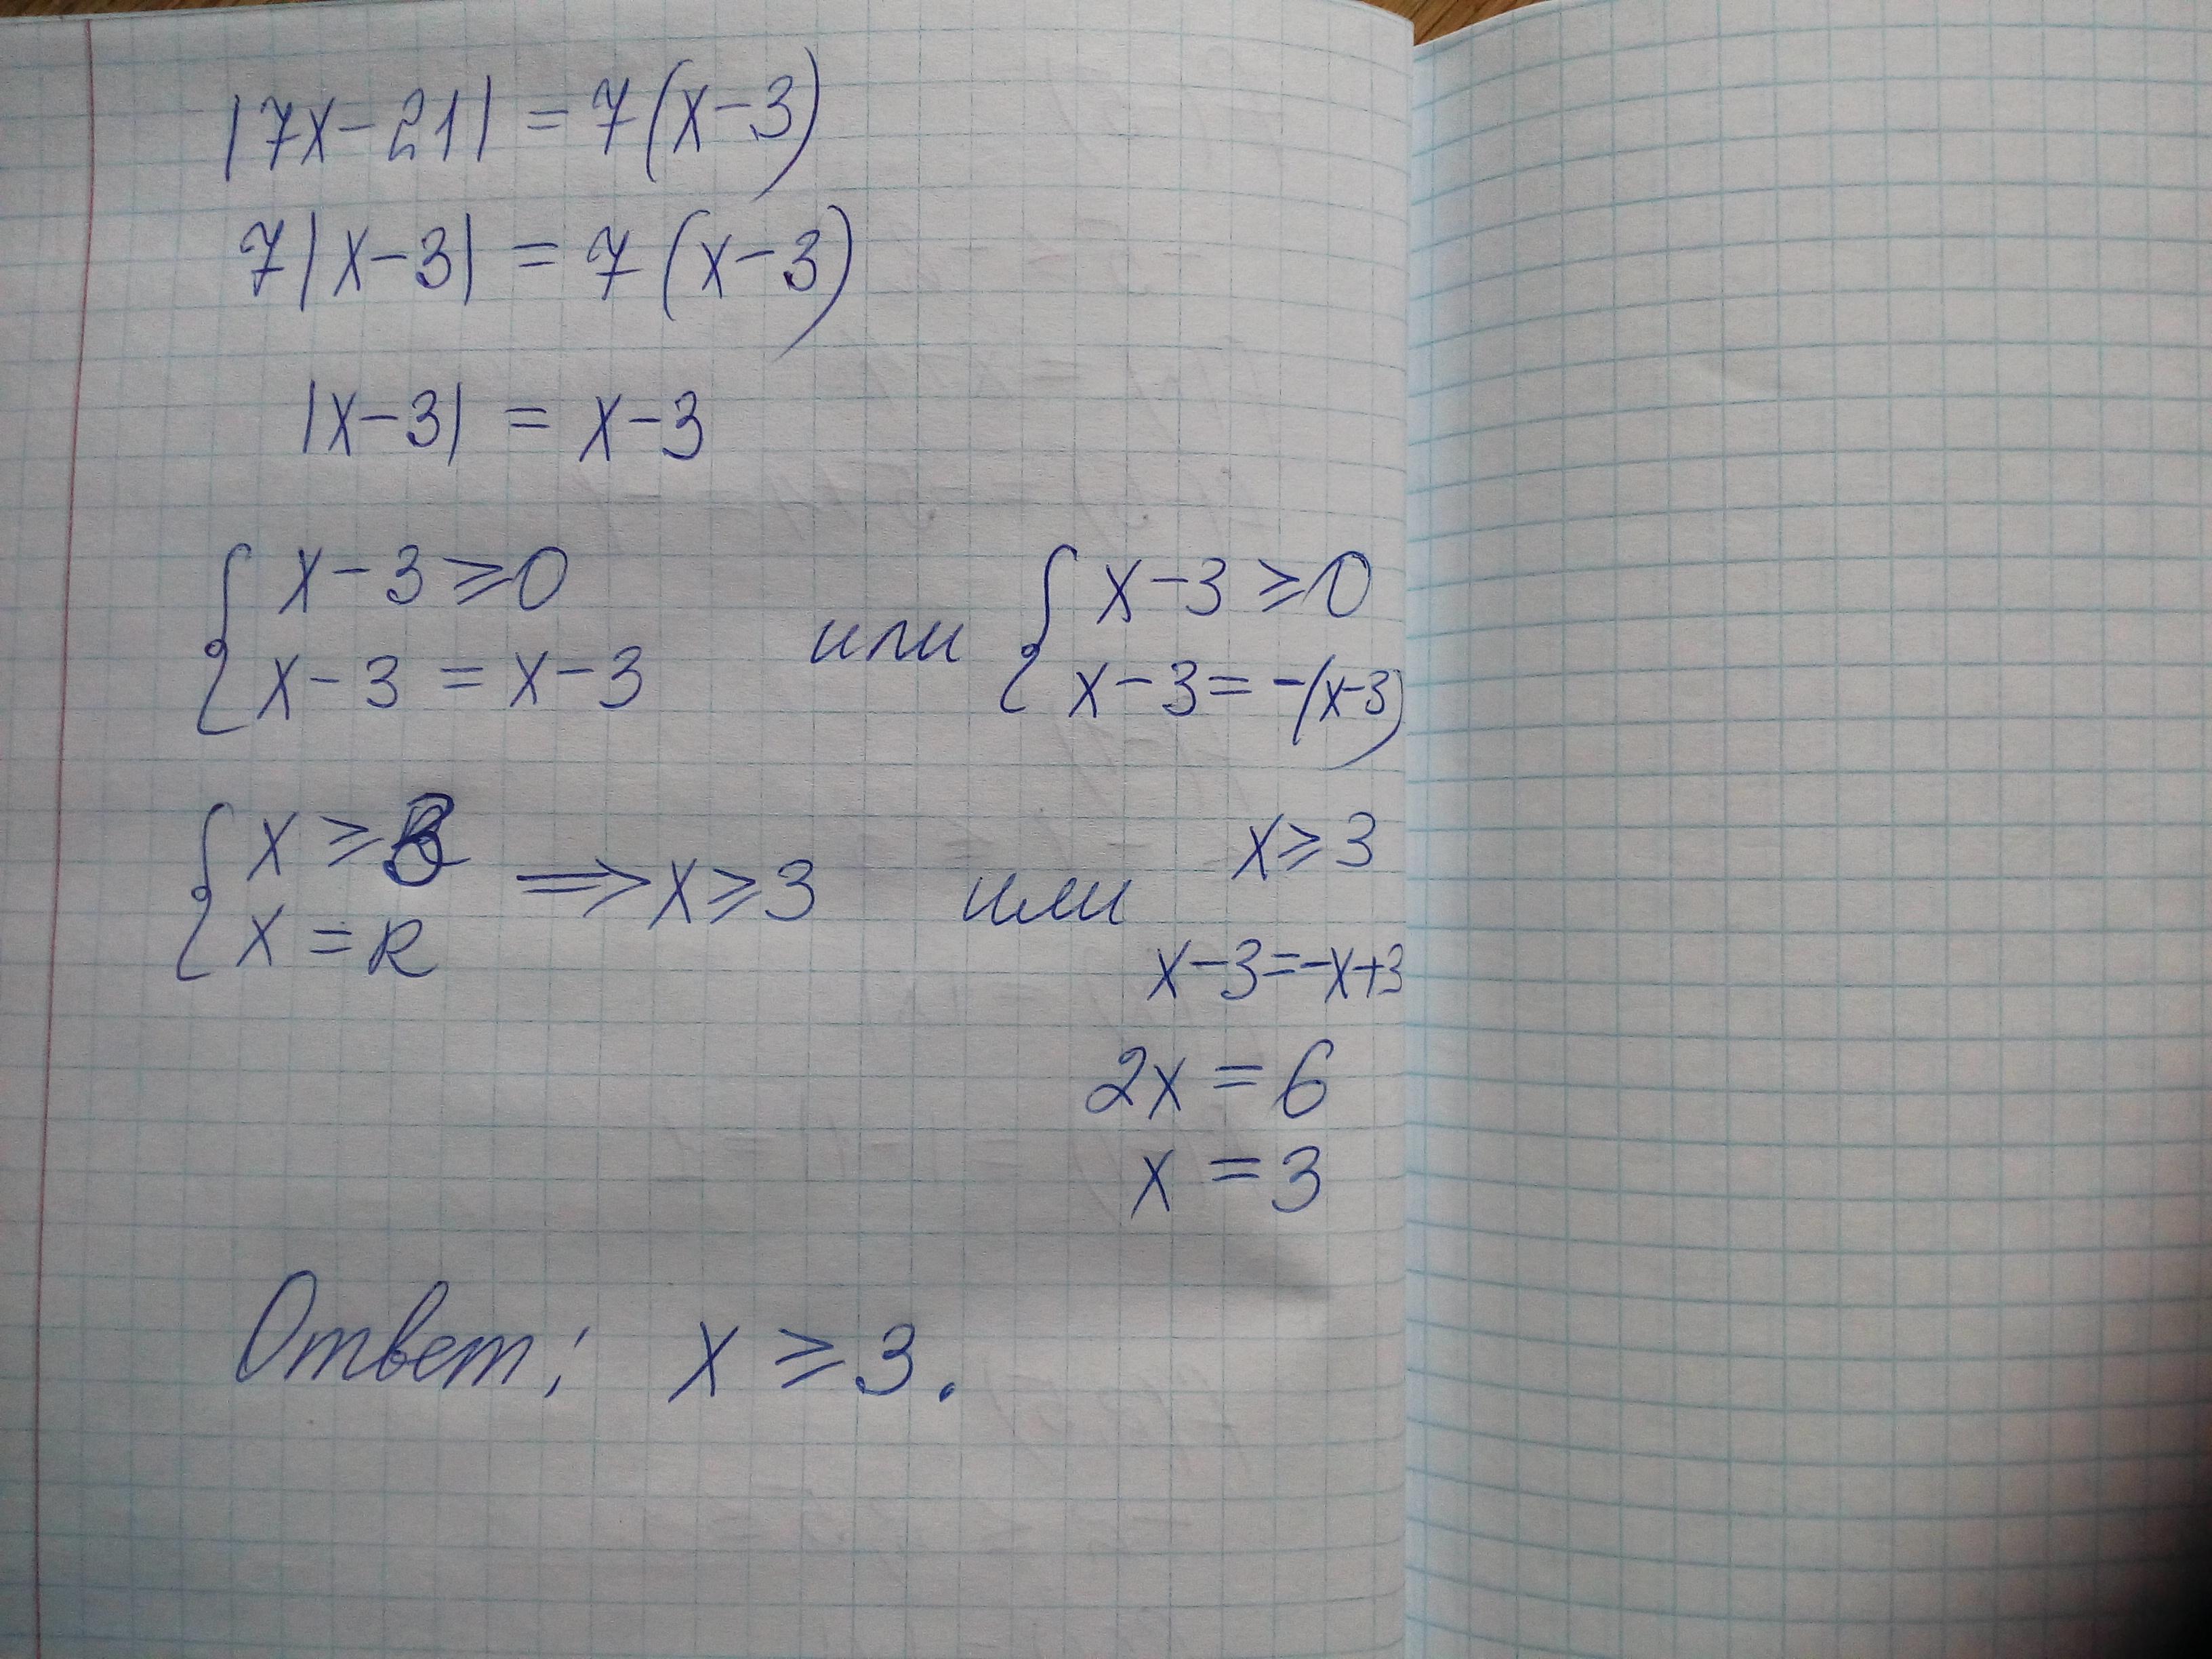 |7x-21| = 7(x-3)
7|x-3| = 7(x-3)
|x-3| = x-3
{ x-3 ≥ 0 или { x-3 ≥ 0
x-3 = x-3 x-3 = -(x-3)
{ x ≥ 3 ⟹ x ≥ 3 или x ≥ 3
x = R x-3 = -x+3
2x = 6
x = 3
Ответ: x ≥ 3.